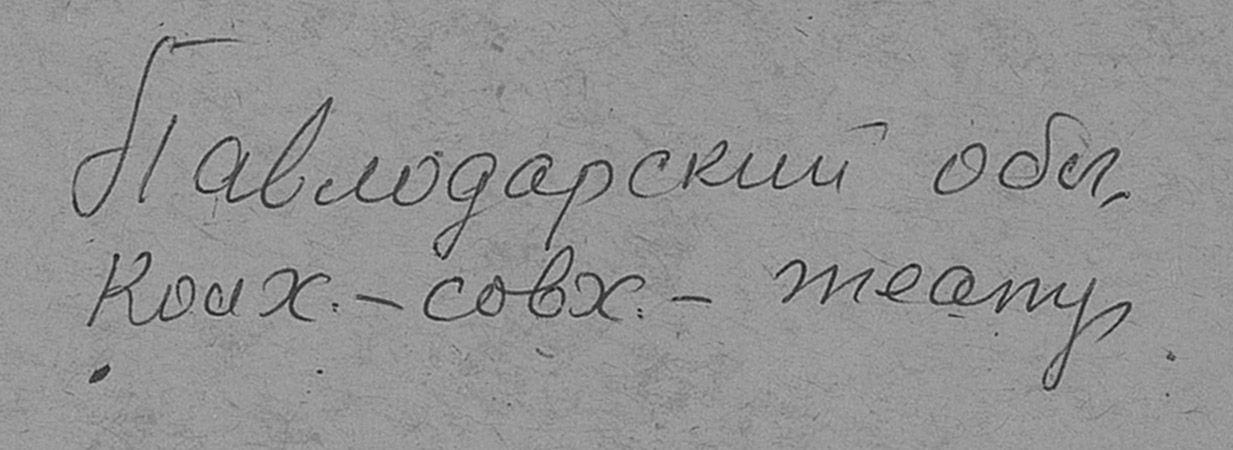 Павлодарский обл.
колх.-совх.- театр